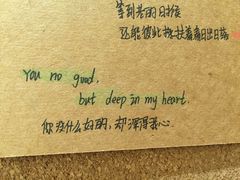 等到老明日時候
还能彼此搀扶着看日出日落
You no good,
but deep in my heart.
你没什么好的，却深得我心